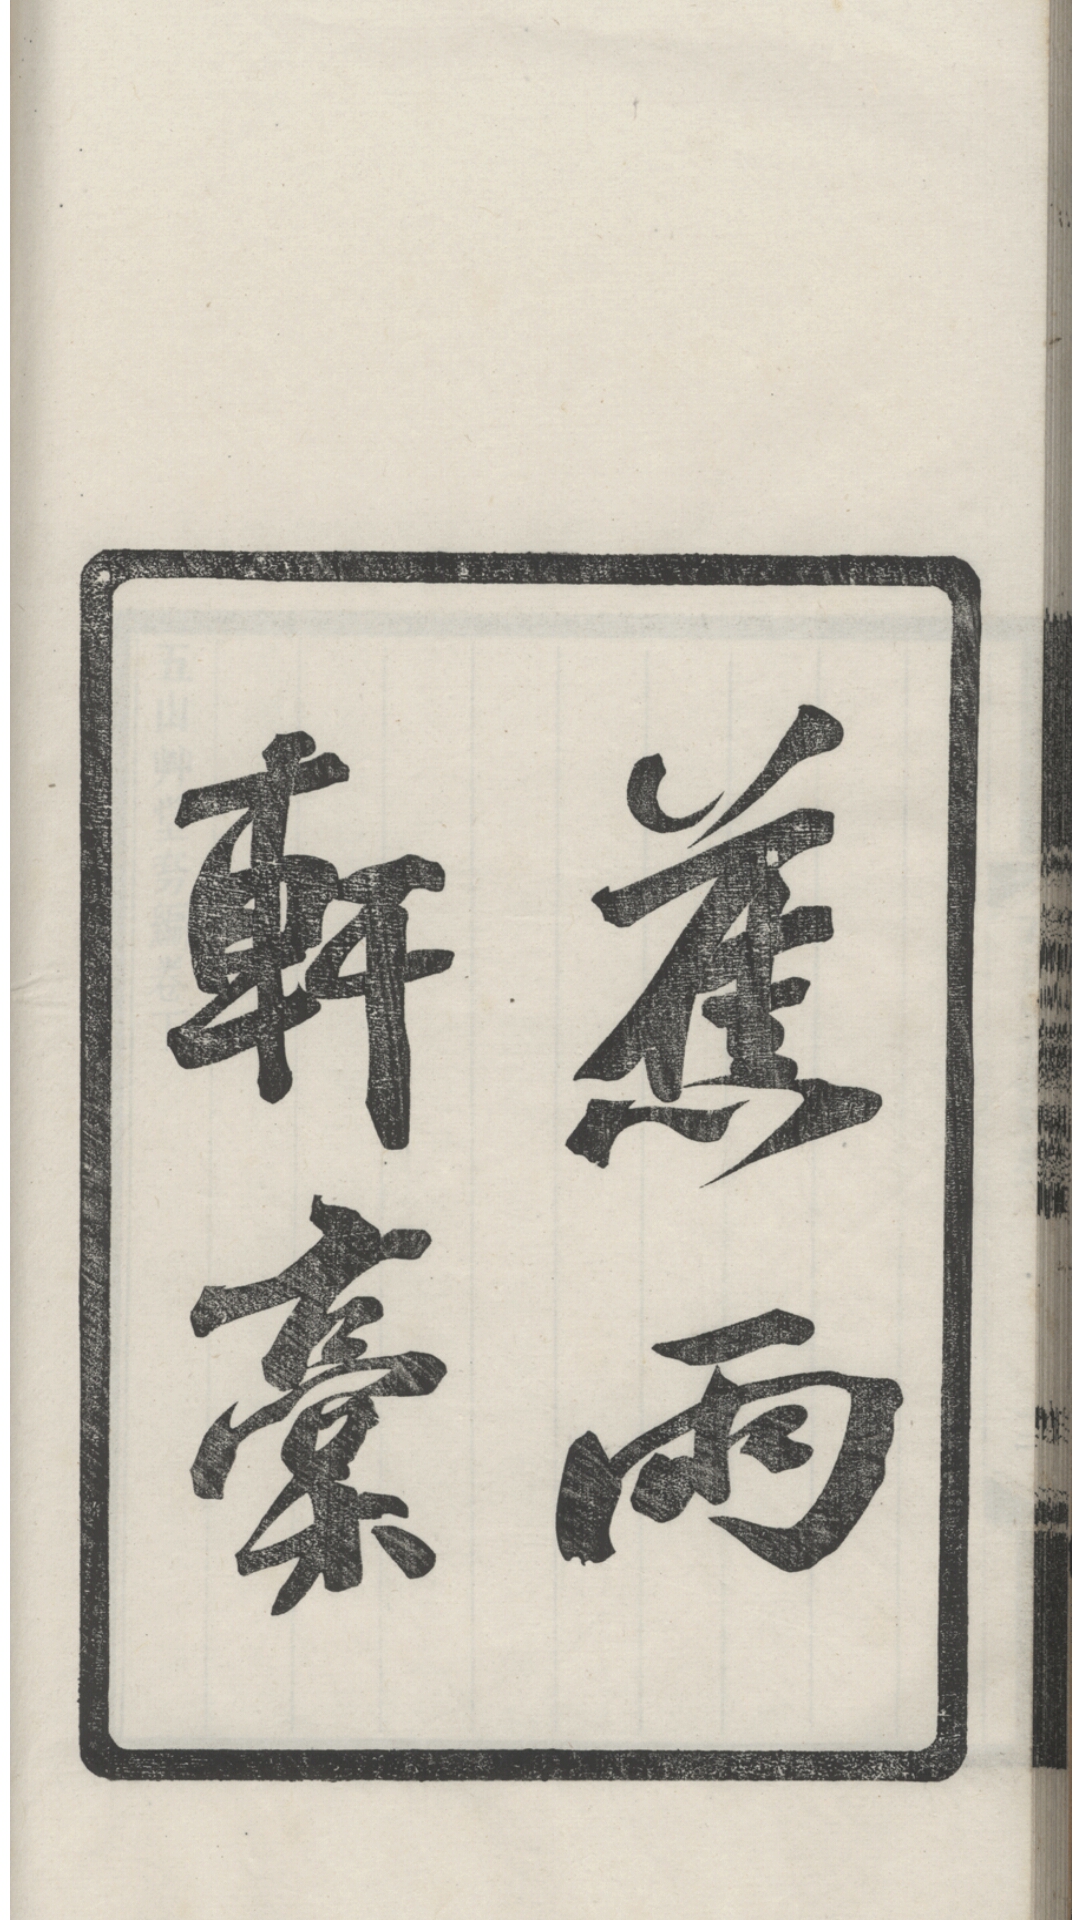 蕉雨
軒稾